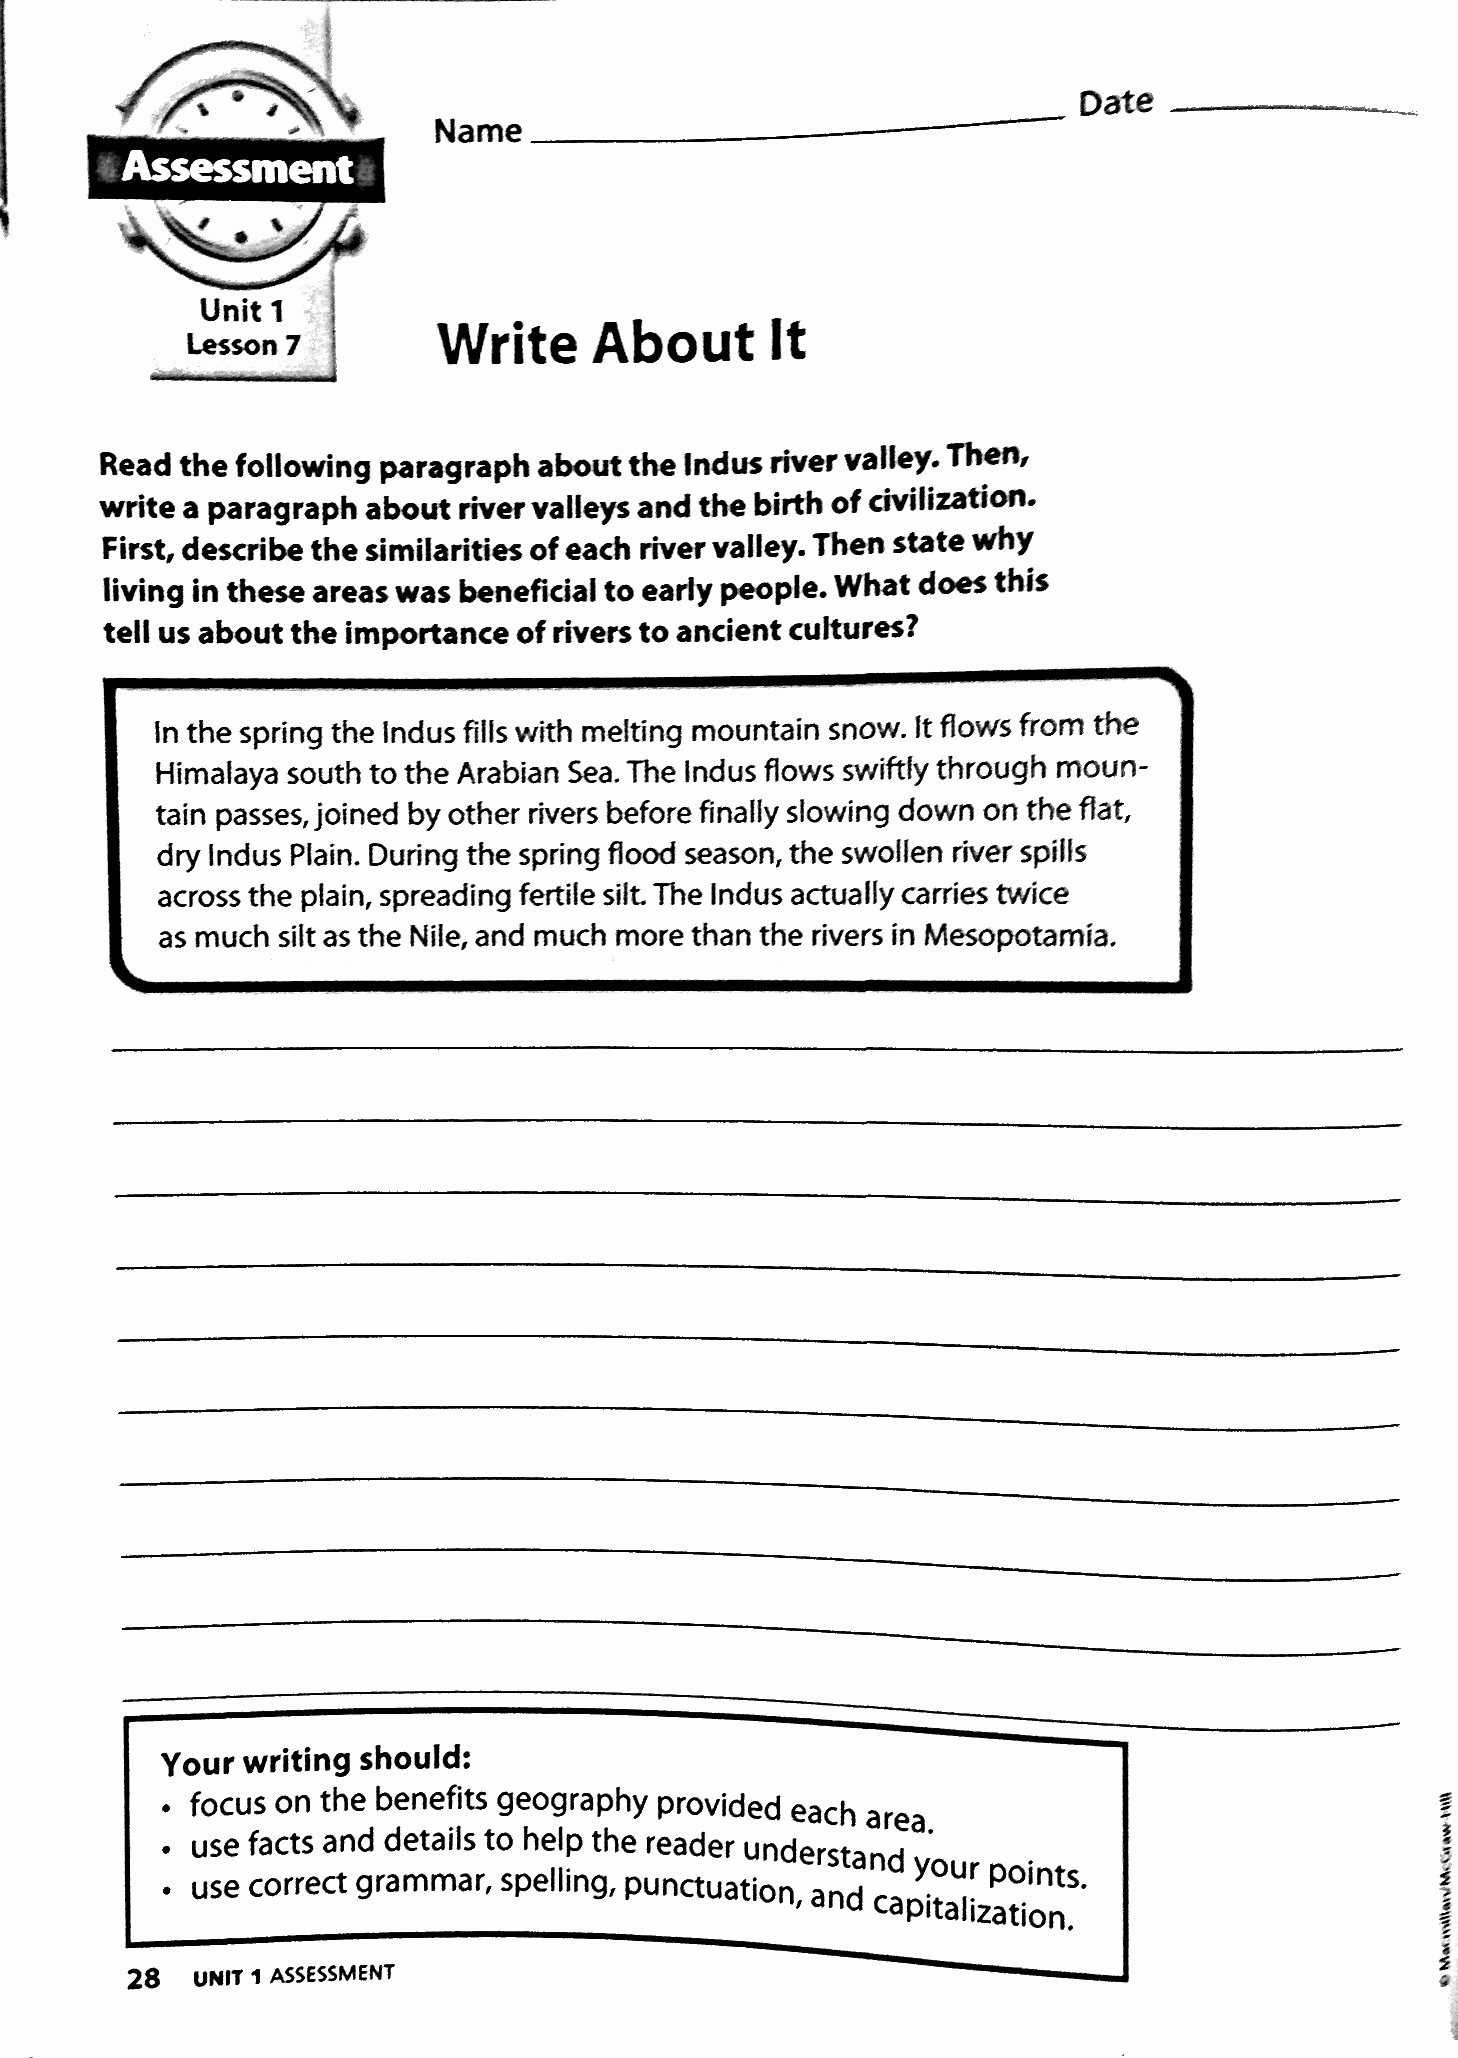 Name
Date
Assessment
Unit 1
Lesson 7
Write About It
Read the following paragraph about the Indus river valley. Then,
write a paragraph about river valleys and the birth of civilization.
First, describe the similarities of each river valley. Then state why
living in these areas was beneficial to early people. What does this
tell us about the importance of rivers to ancient cultures?
In the spring the Indus fills with melting mountain snow. It flows from the
Himalaya south to the Arabian Sea. The Indus flows swiftly through moun-
tain passes, joined by other rivers before finally slowing down on the flat,
dry Indus Plain. During the spring flood season, the swollen river spills
across the plain, spreading fertile silt. The Indus actually carries twice
as much silt as the Nile, and much more than the rivers in Mesopotamia.
Your writing should:
• focus on the benefits geography provided each area.
• use facts and details to help the reader understand your points.
• use correct grammar, spelling, punctuation, and capitalization.
28 UNIT 1 ASSESSMENT
© Macmillan/McGraw-Hill